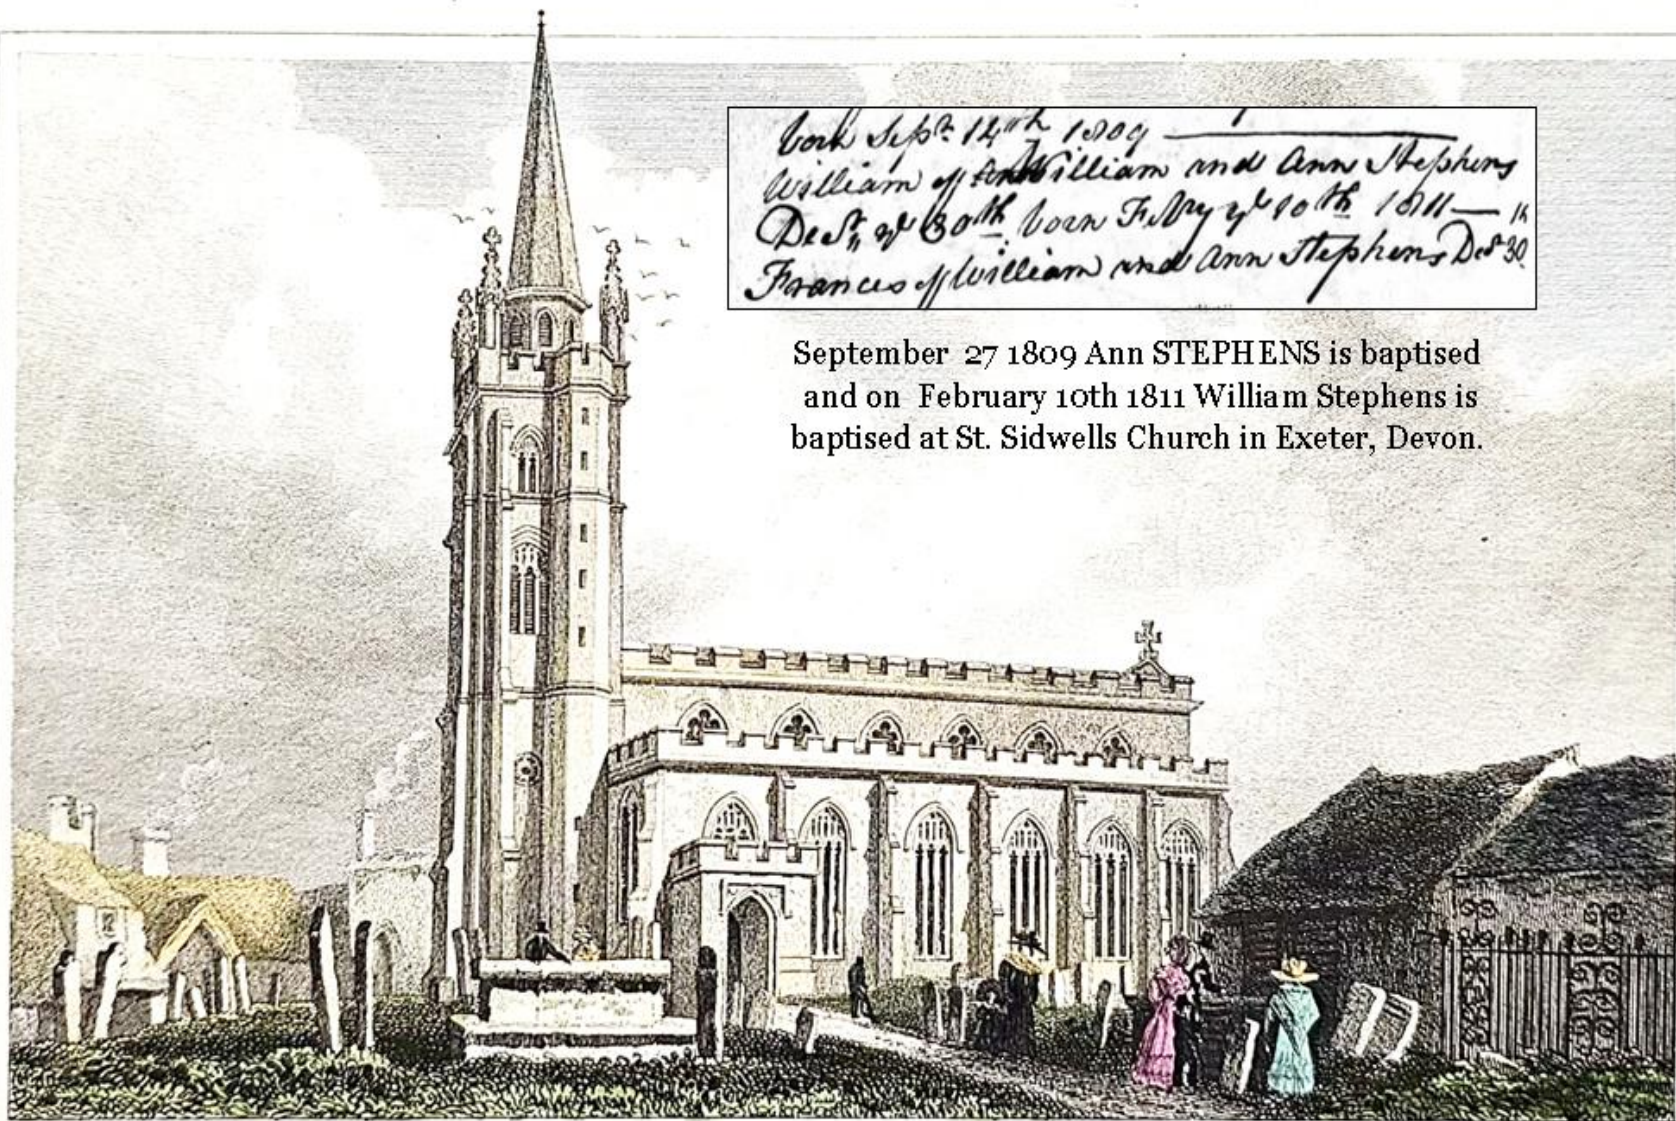 born Sept. 14th 1809
William of William and Ann Stephens
Decr. ye 30th born Febry ye 10th 1811
Frances of William and Ann Stephens Decr 30.
September 27 1809 Ann STEPHENS is baptised
and on February 10th 1811 William Stephens is
baptised at St. Sidwells Church in Exeter, Devon.